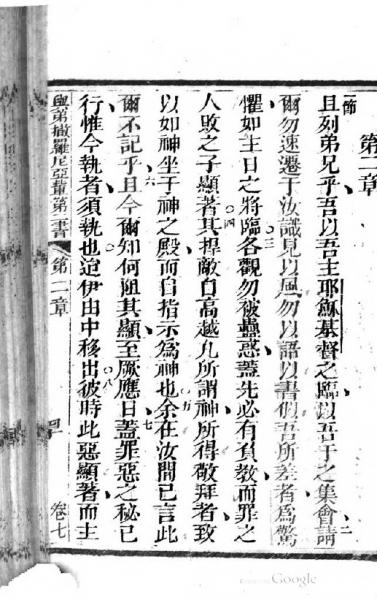 第二章
一節 且列弟兄乎吾以吾主耶穌基督之臨以吾于之集會請 二
爾勿速遷于汝識見以風勿以語以書似吾所差者為驚
懼如主日之將臨各觀勿被蠱惑 三 蓋先必有負教而罪之
人敗之子顯著 四 其捍敵自高越凡所謂神所得敬拜者致
以如神坐于神之殿而自指示為神也 五 余在汝間已言此
爾不記乎 六 且今爾知何阻其顯至厥應日 七 蓋罪惡之秘已
行惟今執者須執也迨伊由中移出 八 彼時此惡顯著而主
與弟撒羅尼亞輩第二書 第二章 四 卷七
Google